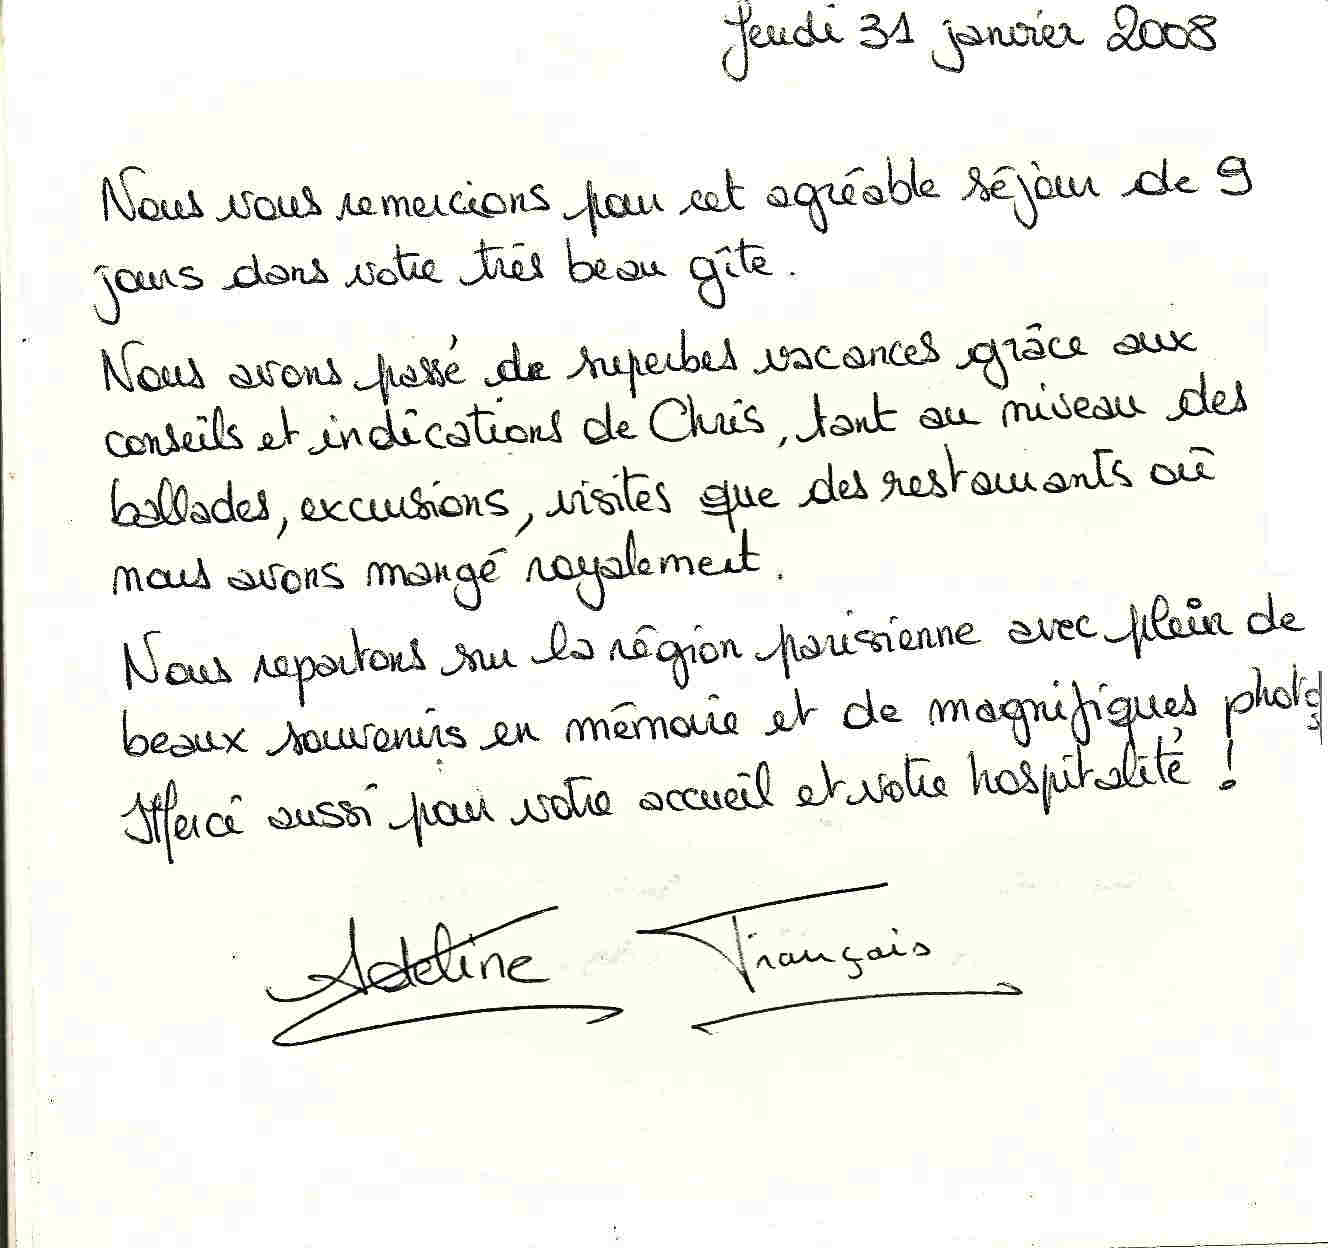 Jeudi 31 janvier 2008
Nous vous remercions pour cet agréable séjour de 9
jours dans votre très beau gîte.
Nous avons passé de superbes vacances grâce aux
conseils et indications de Chris, tant au niveau des
ballades, excursions, visites que des restaurants où
nous avons mangé royalement.
Nous repartons sur la région parisienne avec plein de
beaux souvenirs en mémoire et de magnifiques photos
Merci aussi pour votre accueil et votre hospitalité !
Adeline François